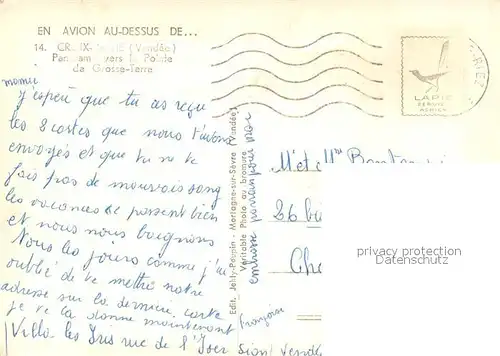 EN AVION AU-DESSUS DE...
14. CROIX-DE-VIE (Vendée)
Panorama vers la Pointe
de Grosse-Terre
LAPIE
SERVICE
AERIEN
mamie
j'espère que tu as reçu
les 8 cartes que nous t'avons
envoyés et que tu ne te
fais pas de mauvais sang
les vacances se passent bien
et nous nous baignons
Tous les jours comme j'ai
oublié de te mettre notre
adresse sur la dernière carte
je te la donne maintenant
Villa les Iris rue de l'Iser Sion Vendée
embrasse parrain pour moi
Françoise
Edit. Jehly-Poupin - Mortagne-sur-Sèvre (Vendée)
Véritable Photo au bromure
Mr et Mme
26
Ch
privacy protection
Datenschutz